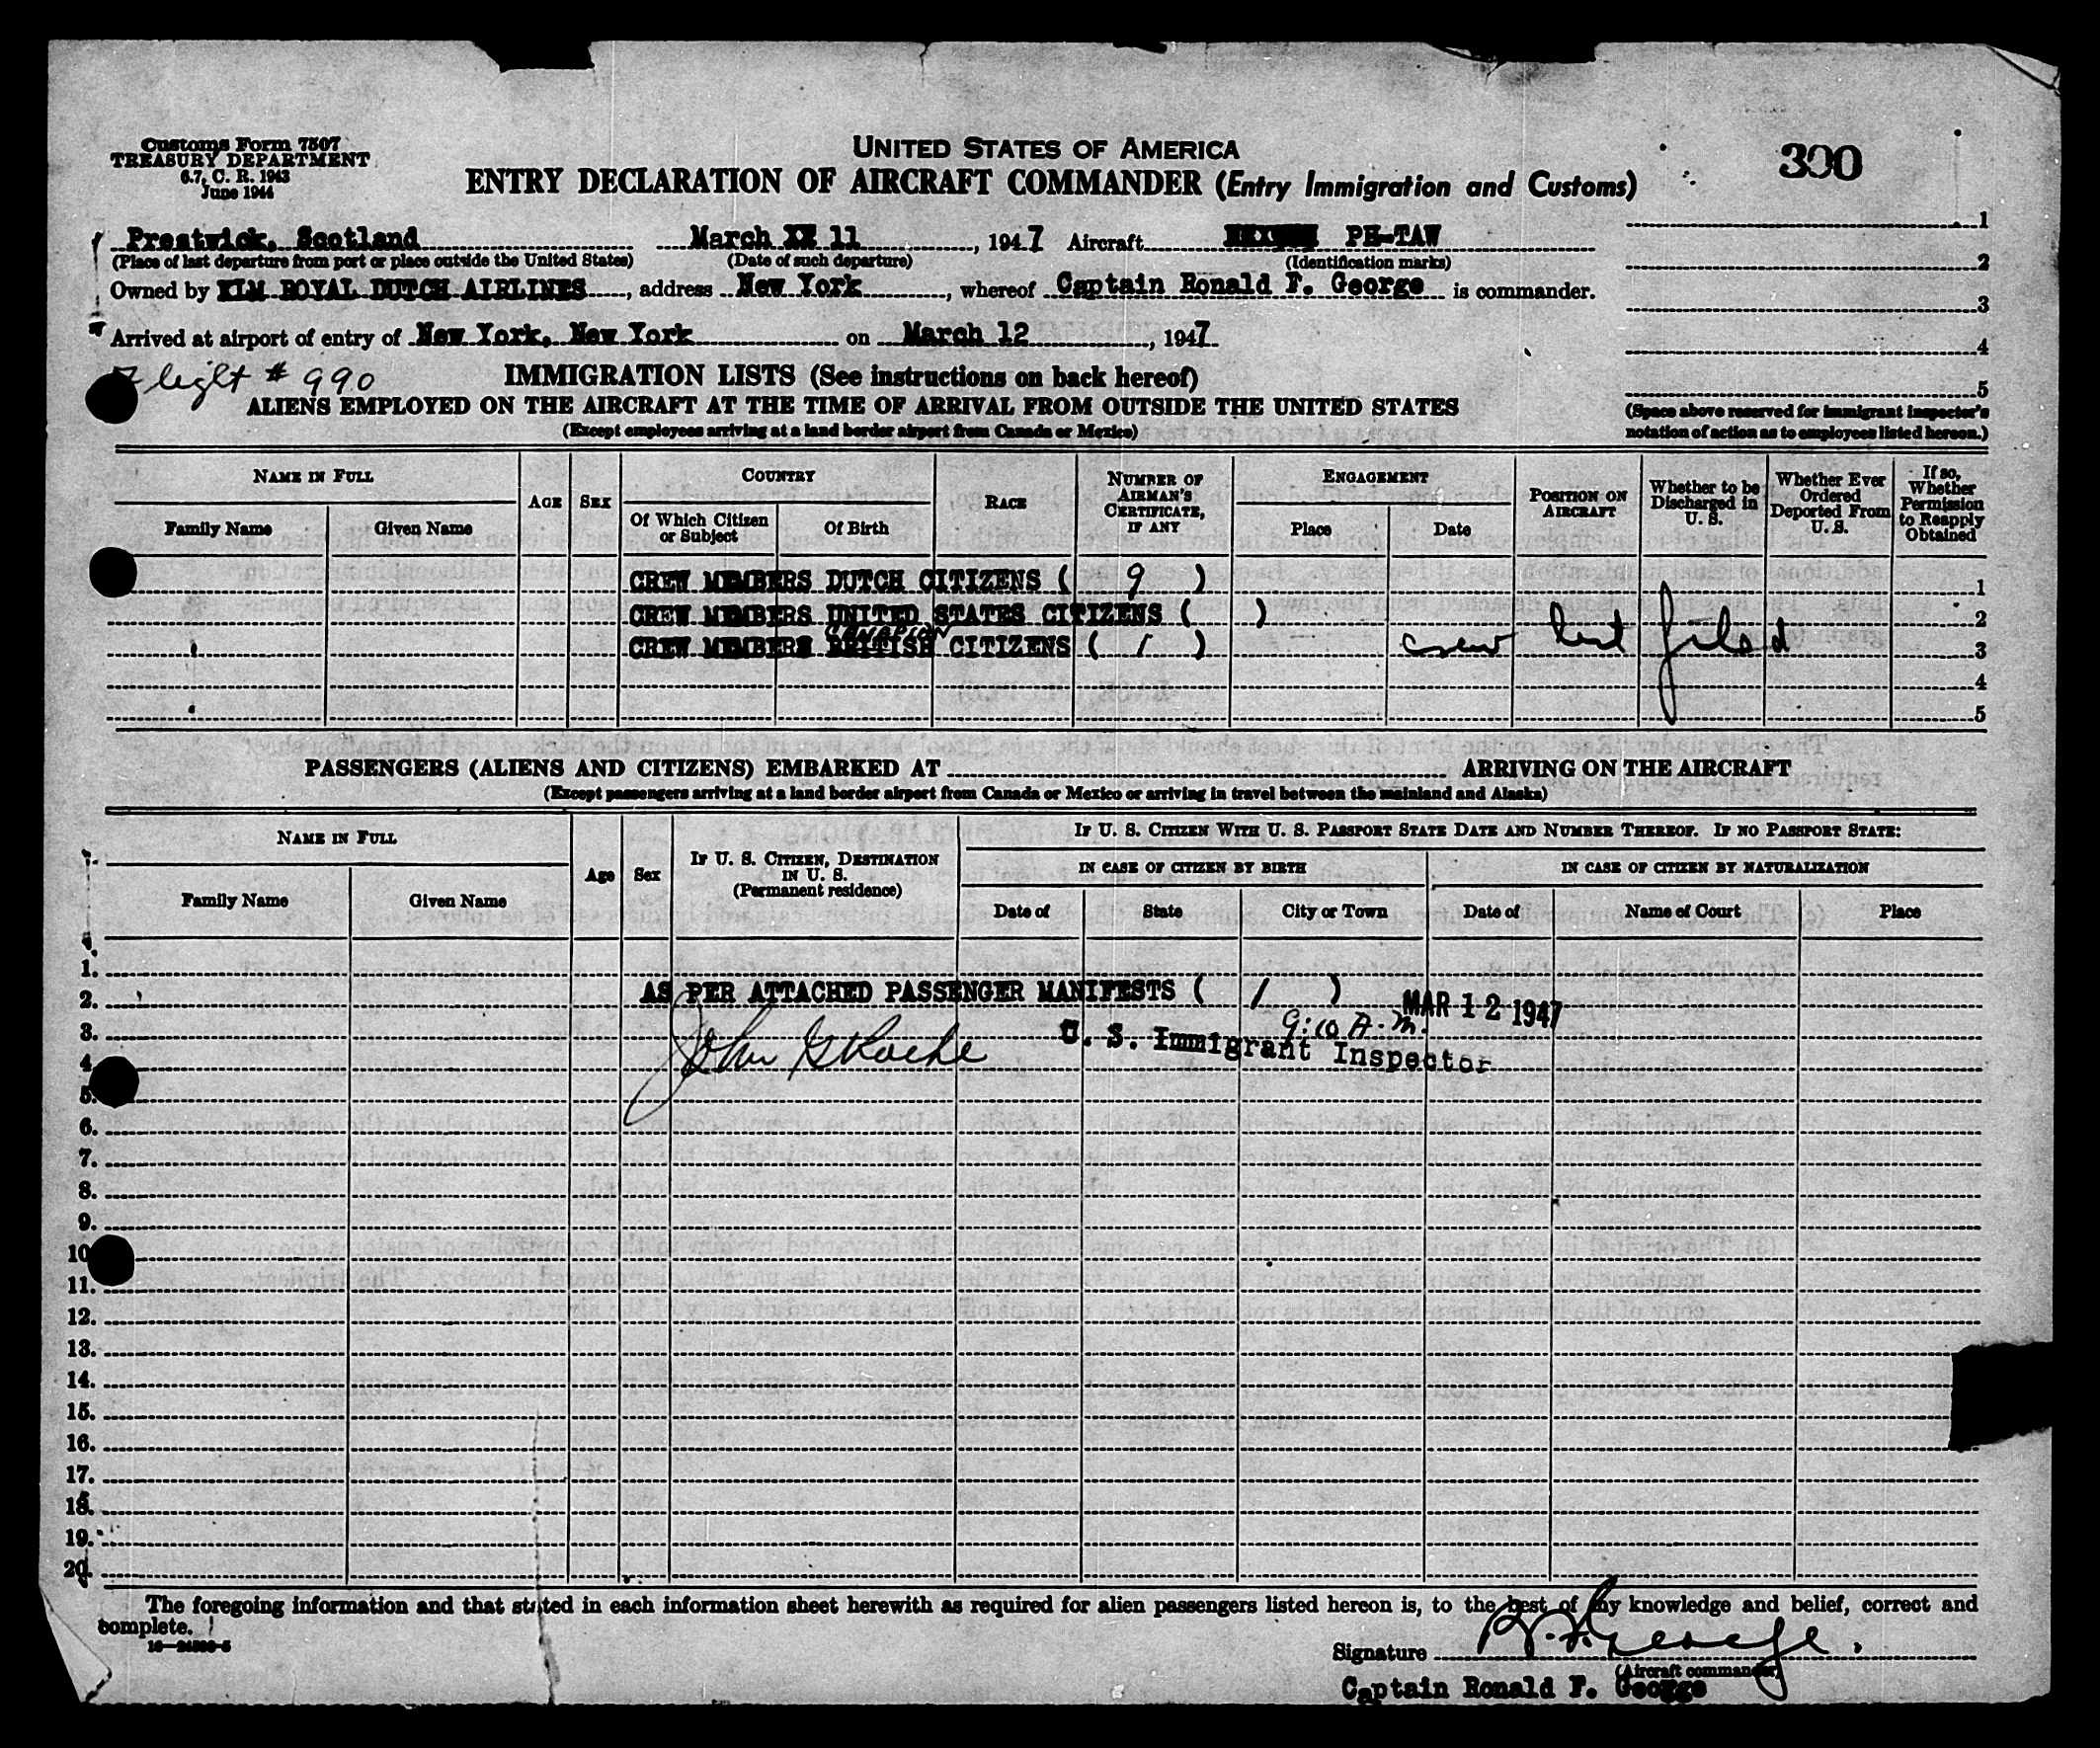 Customs Form 7507
TREASURY DEPARTMENT
6.7, C. R. 1943
June 1944
UNITED STATES OF AMERICA
ENTRY DECLARATION OF AIRCRAFT COMMANDER (Entry Immigration and Customs)
300
Prestwick, Scotland March XX 11, 1947 Aircraft PH-TAW
(Place of last departure from port or place outside the United States) (Date of such departure) (Identification marks)
Owned by KLM ROYAL DUTCH AIRLINES, address New York, whereof Captain Ronald F. George is commander.
Arrived at airport of entry of New York, New York on March 12, 1947
1
2
3
4
5
(Space above reserved for immigrant inspector's
notation of action as to employees listed hereon.)
Flight # 990
IMMIGRATION LISTS (See instructions on back hereof)
ALIENS EMPLOYED ON THE AIRCRAFT AT THE TIME OF ARRIVAL FROM OUTSIDE THE UNITED STATES
(Except employees arriving at a land border airport from Canada or Mexico)
NAME IN FULL
Family Name
Given Name
AGE
SEX
COUNTRY
Of Which Citizen
or Subject
Of Birth
RACE
NUMBER OF
AIRMAN'S
CERTIFICATE,
IF ANY
ENGAGEMENT
Place
Date
POSITION ON
AIRCRAFT
Whether to be
Discharged in
U. S.
Whether Ever
Ordered
Deported From
U. S.
If so,
Whether
Permission
to Reapply
Obtained
CREW MEMBERS DUTCH CITIZENS ( 9 ) 1
CREW MEMBERS UNITED STATES CITIZENS ( ) 2
CANADIAN
CREW MEMBERS BRITISH CITIZENS ( 1 ) crew list filed 3
4
5
PASSENGERS (ALIENS AND CITIZENS) EMBARKED AT ARRIVING ON THE AIRCRAFT
(Except passengers arriving at a land border airport from Canada or Mexico or arriving in travel between the mainland and Alaska)
NAME IN FULL
Family Name
Given Name
Age
Sex
IF U. S. CITIZEN, DESTINATION
IN U. S.
(Permanent residence)
IF U. S. CITIZEN WITH U. S. PASSPORT STATE DATE AND NUMBER THEREOF. IF NO PASSPORT STATE:
IN CASE OF CITIZEN BY BIRTH
Date of
State
City or Town
IN CASE OF CITIZEN BY NATURALIZATION
Date of
Name of Court
Place
1.
2. AS PER ATTACHED PASSENGER MANIFESTS ( 1 ) MAR 12 1947
9:10 A.M.
3. John G Roche U. S. Immigrant Inspector
4.
5.
6.
7.
8.
9.
10
11.
12.
13.
14.
15.
16.
17.
18.
19.
20.
The foregoing information and that stated in each information sheet herewith as required for alien passengers listed hereon is, to the best of my knowledge and belief, correct and
complete.
Signature R. F. George.
(Aircraft commander)
Captain Ronald F. George